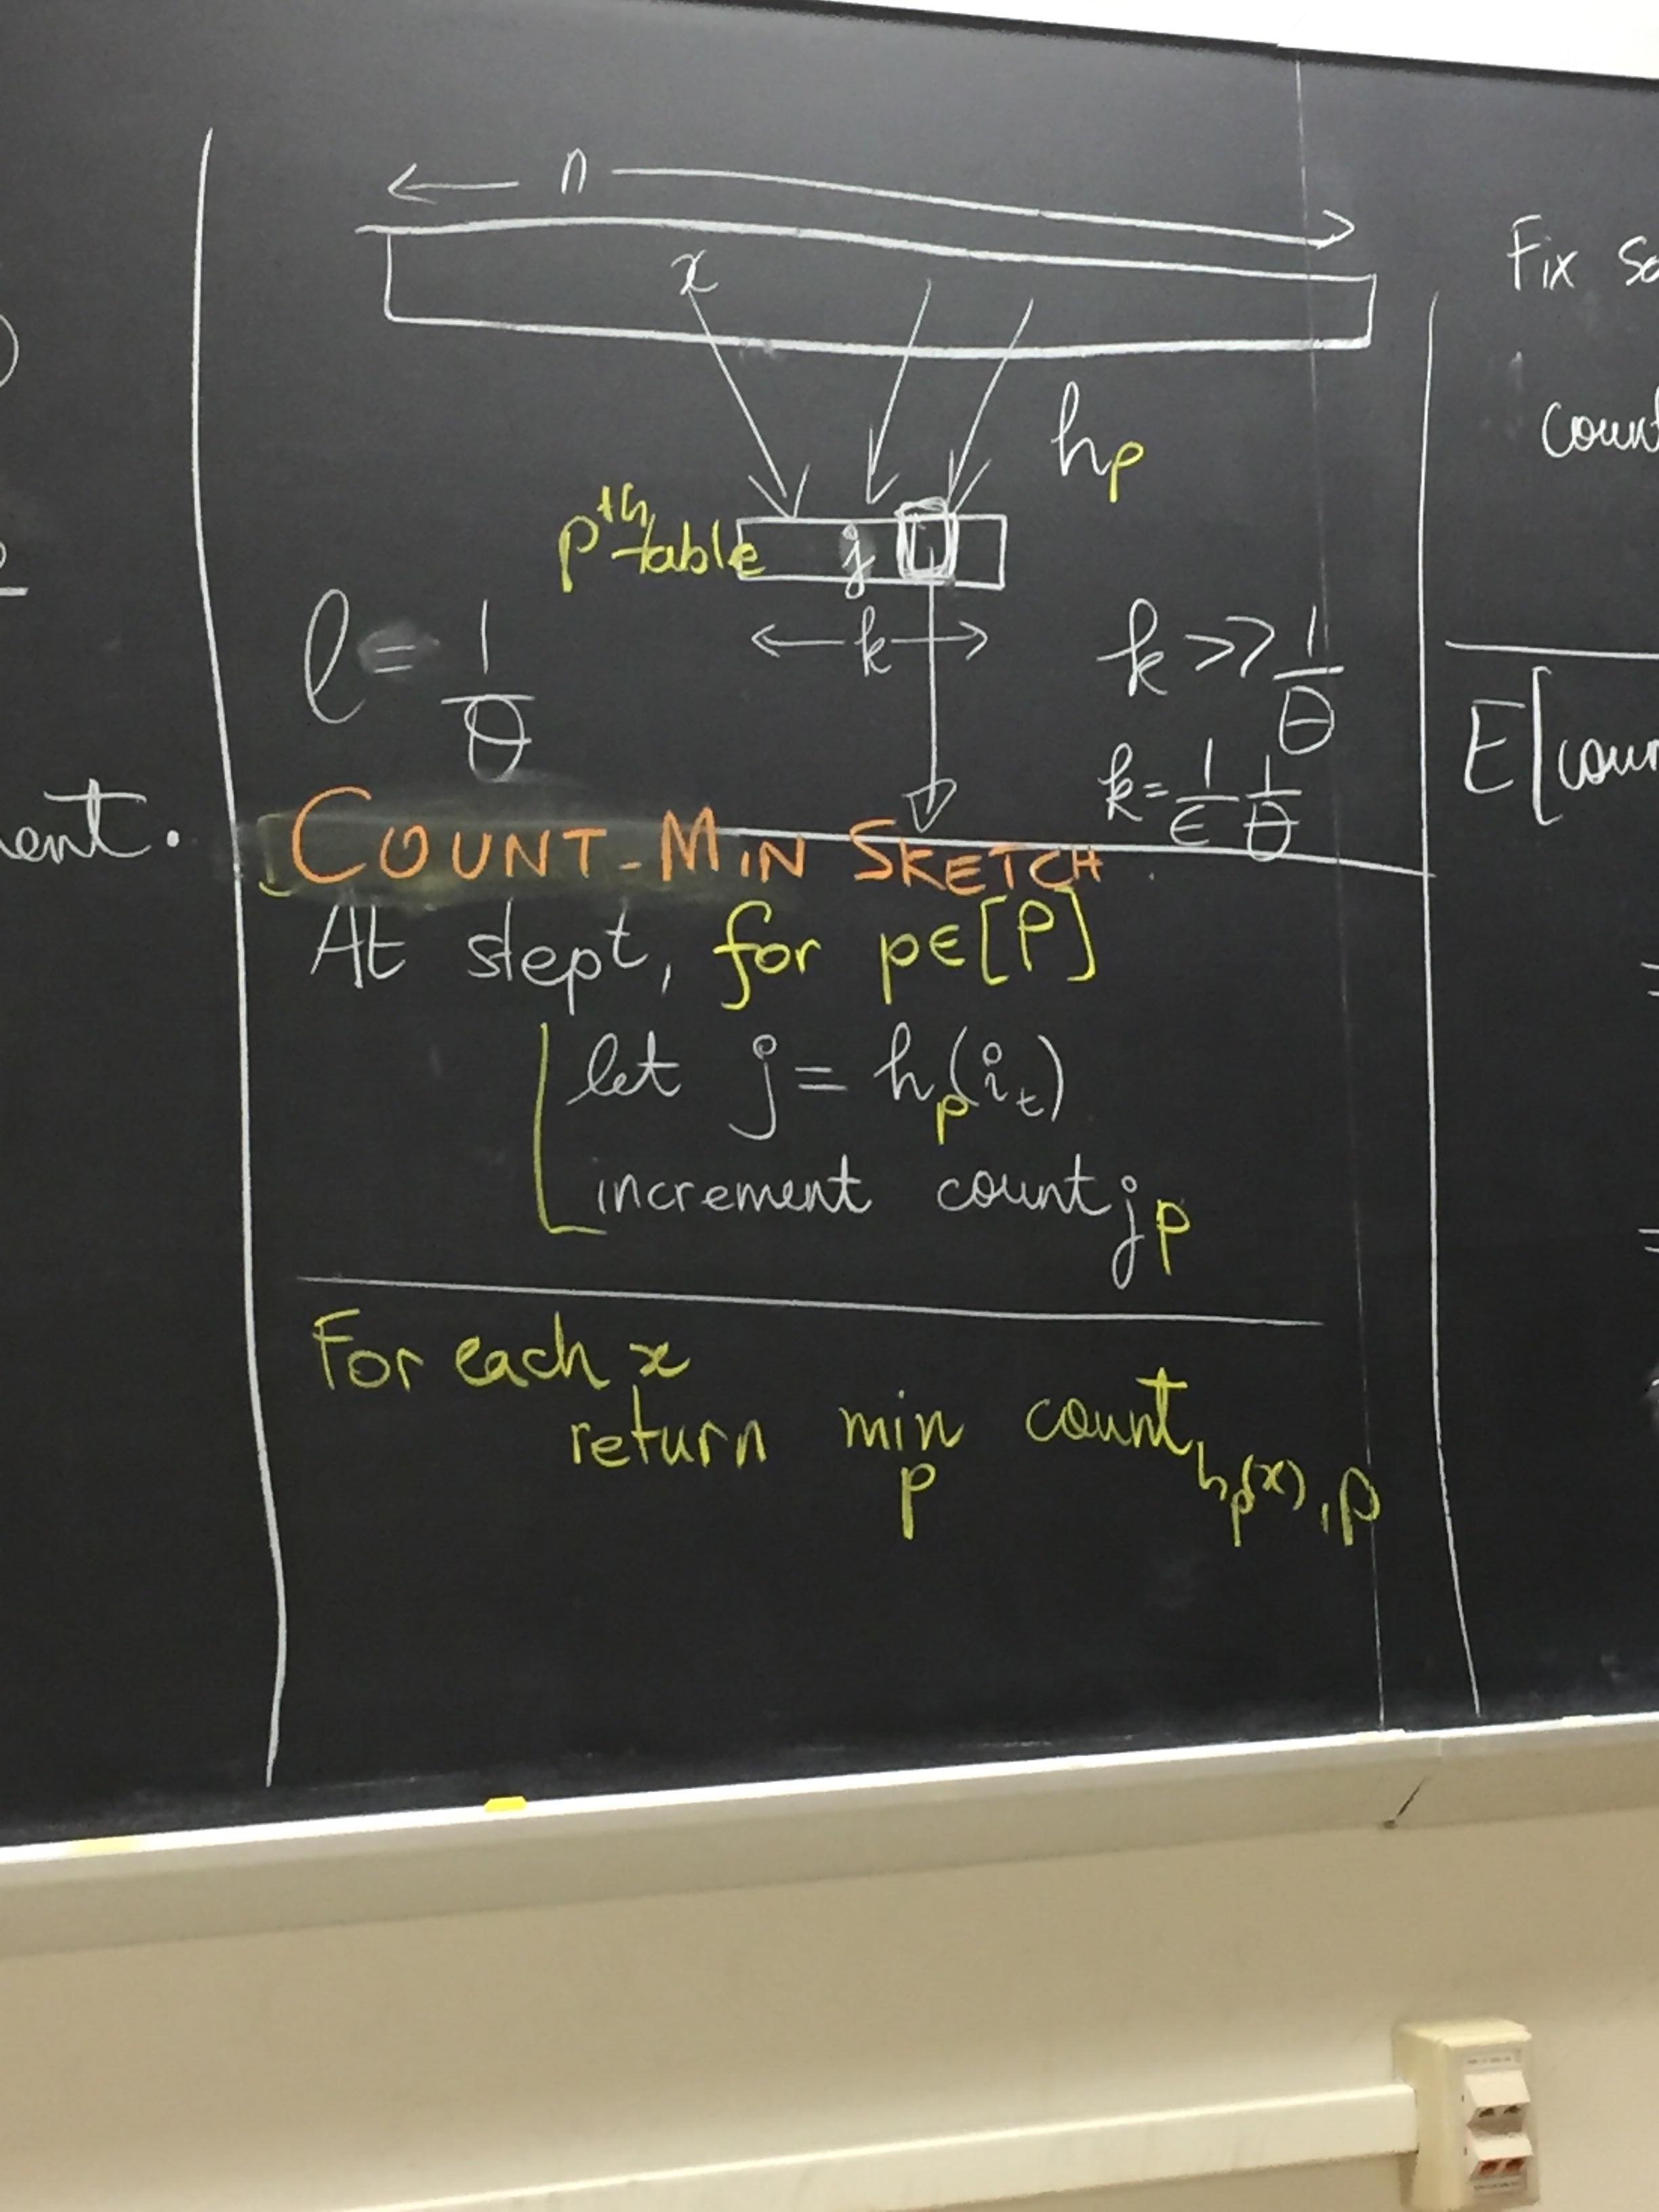 ← n →
x
h_p
p^th table j
← k →
l = 1/θ
k >> 1/θ
k = 1/ϵ 1/θ
COUNT-MIN SKETCH
At step t, for p∈[P]
let j = h_p(i_t)
increment count_jp
For each x
return min_p count_{h_p(x), p}
Fix
E[